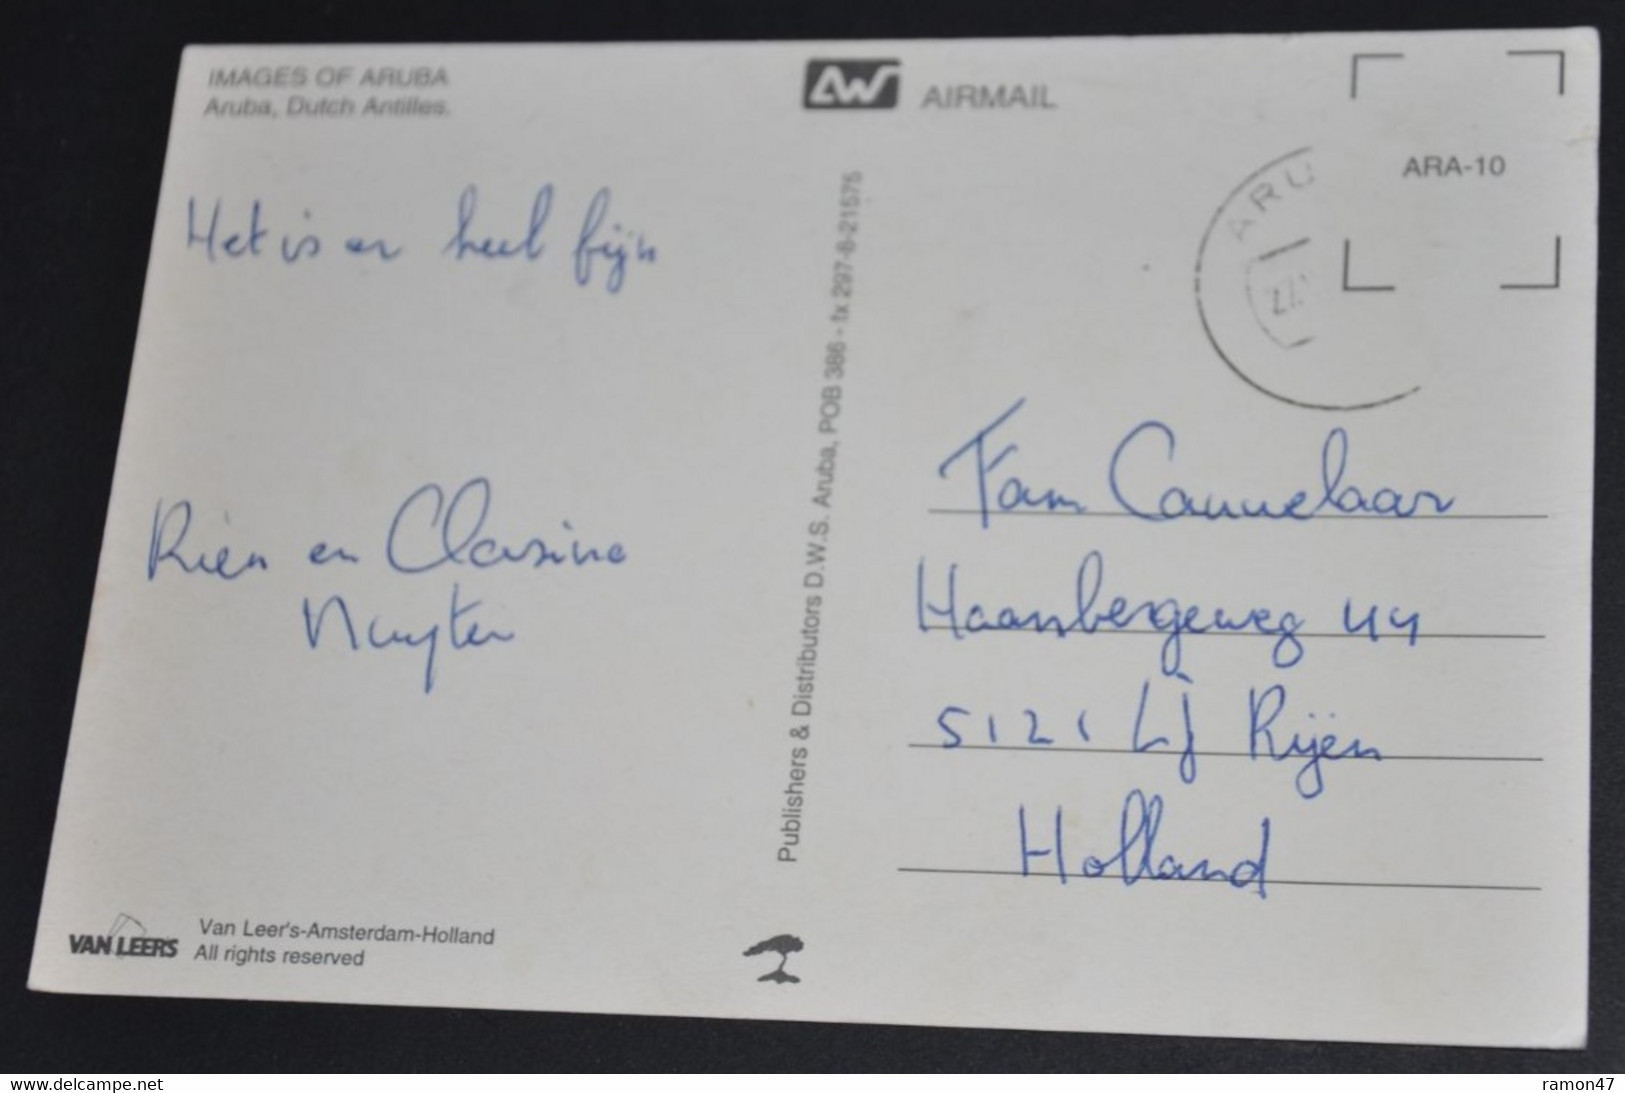 IMAGES OF ARUBA
Aruba, Dutch Antilles.
Het is er heel fijn
Rien en Clasine
Nuyten
VAN LEER'S
Van Leer's-Amsterdam-Holland
All rights reserved
Publishers & Distributors D.W.S. Aruba, POB 386 - fx 297-8-21575
AIRMAIL
ARU
ARA-10
Fam Cannelaar
Haansbergeweg 44
5121 LJ Rijen
Holland
www.delcampe.net
ramon47